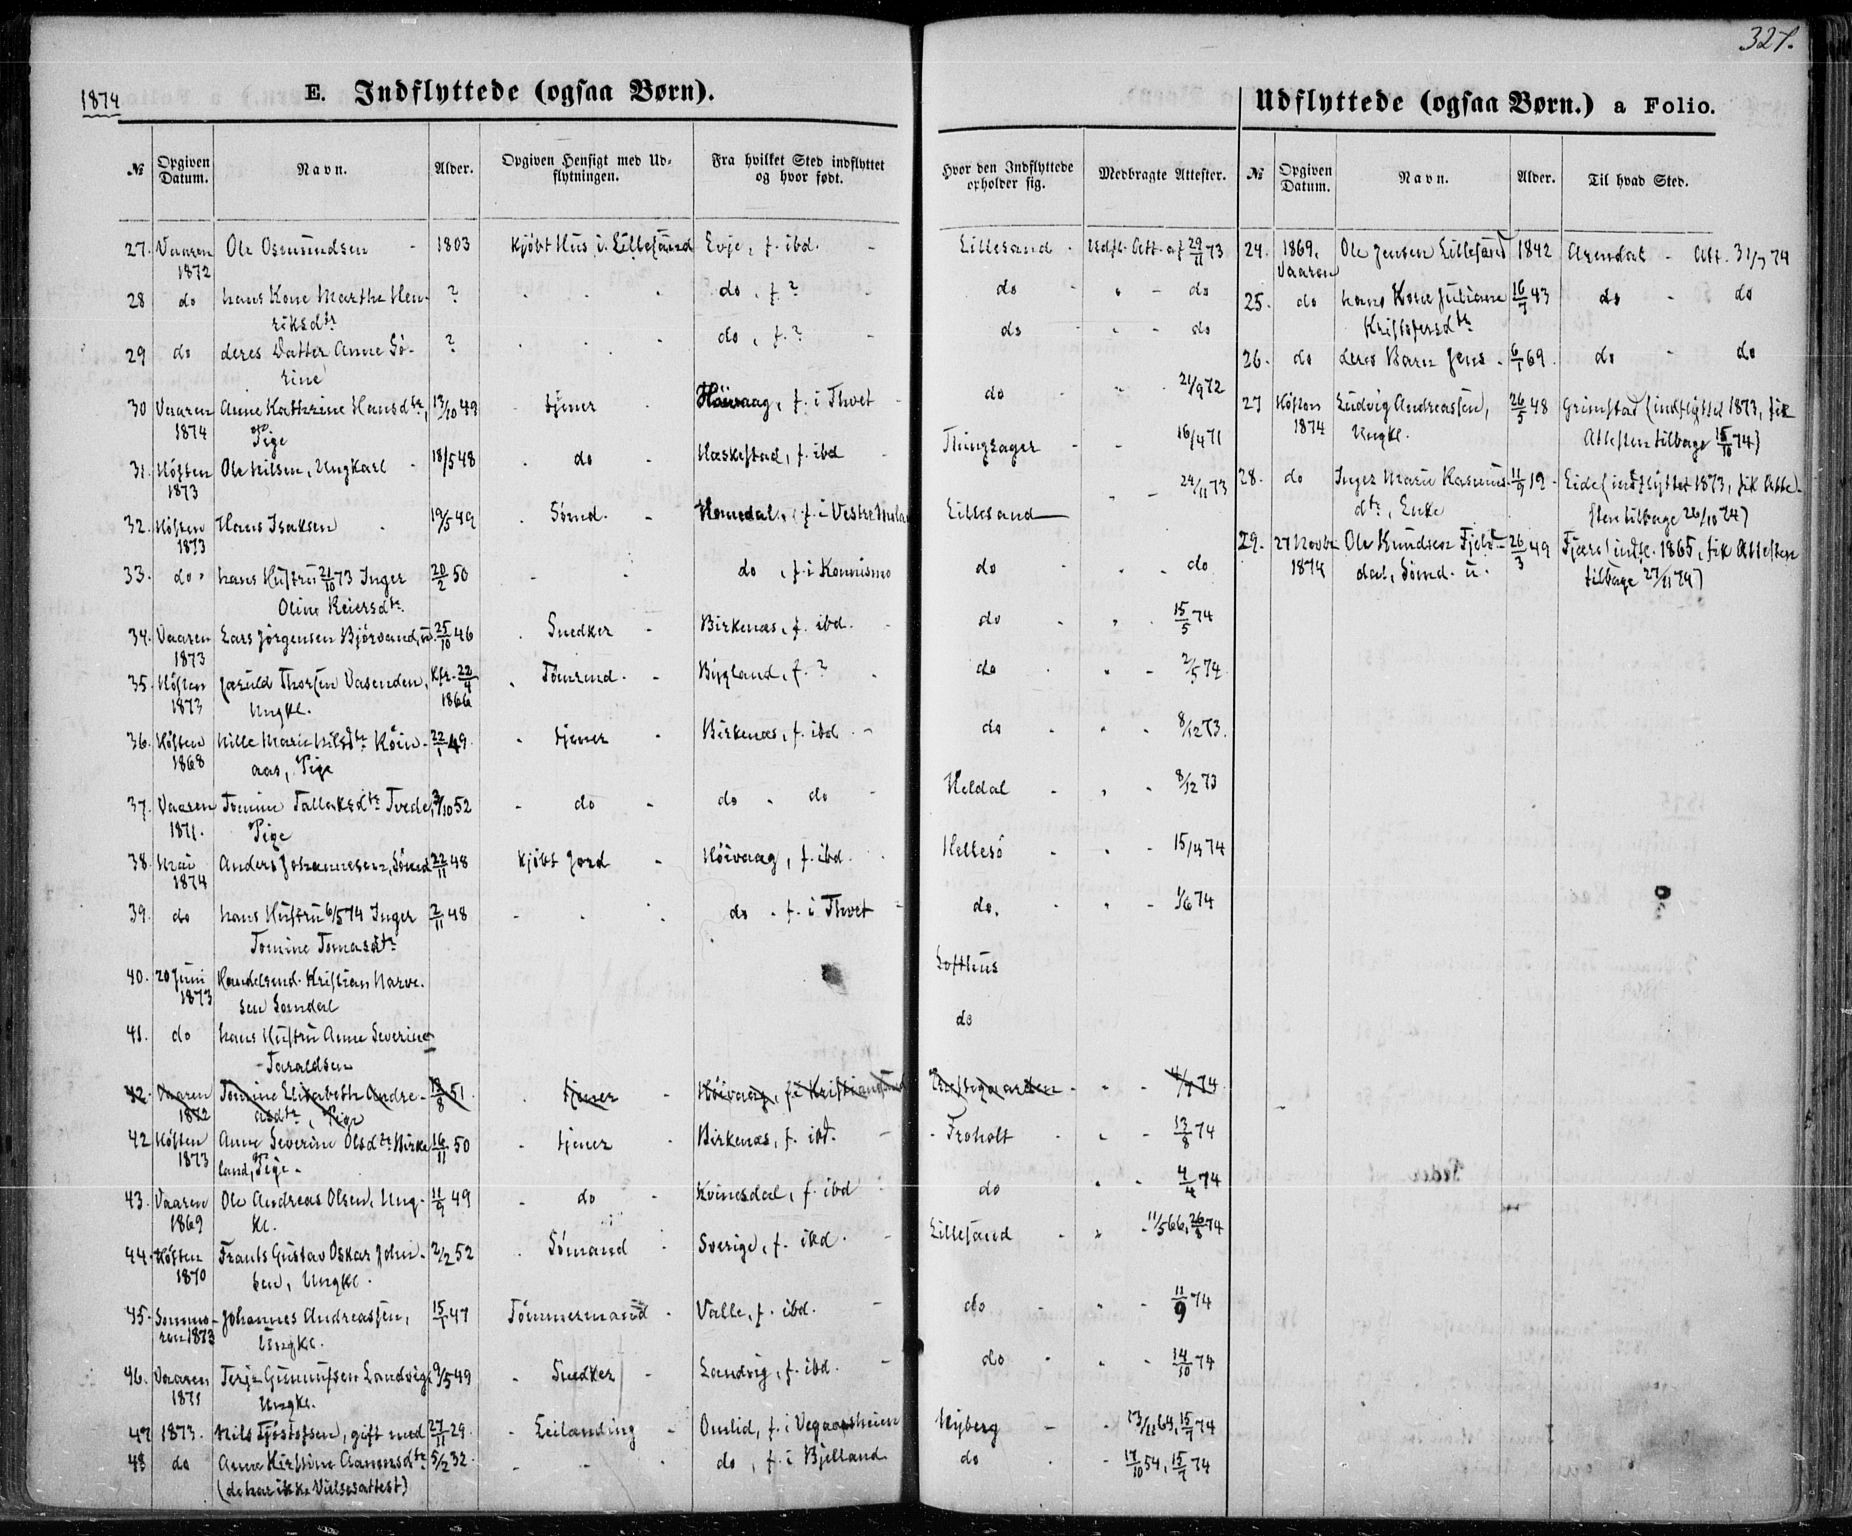 327.
1874
E. Indflyttede (ogsaa Børn).
Udflyttede (ogsaa Børn.) a Folio.
№ Opgiven Datum. Navn. Alder. Opgiven Hensigt med Udflytningen. Fra hvilket Sted indflyttet og hvor født. Hvor den Indflyttede opholder sig. Medbragte Attester.
27. Vaaren Ole Osmundsen - 1803 Kjøbt Hus i Lillesand Evje, f. ibd. - Lillesand - Udfl. Att. af 29/11 73
1872
28 do hans Kone Marthe Hen- ? do, f. ? do - do
riksdtr
29 do deres Datter Anne Sö- ? do, f. ? do - do
rine
30 Vaaren Anne Kathrine Hansdtr, 13/10 49 - tjener - Höivaag, f. i Thvet - do 21/9 72
1874 Pige
31. Høsten Ole Nilsen, Ungkarl - 18/5 48 - do - Hæskestad, f. ibd Thingsager - 16/4 71
1873
32. Høsten Hans Isaksen - 19/5 49 . Sömd. - Homedal, f. i Vestre Lillesand 24/11 73
1873
33. do hans Hustru 21/10 73 Inger 20/2 50 do, f. i do do
Oline Reiersdtr.
34. Vaaren Lars Jörgensen Björvand, 25/10 46 . Snedker - Birkenæs, f. ibd. do 15/5 74
1873
35. Høsten Thorsen Vasenden, Kfr. 22/4 . Tömrmd. - Bygland, f. ? do 2/5 74
1873 Ungkl. 1866
36. Høsten Nille Marie Nilsdtr Röin- 22/1 49. - tjener - Birkenæs, f. ibd. - do 8/12 73.
1868 aas, Pige
37. Vaaren Tomine Tallaksdtr Tvede, 3/10 52 - do - do - do Heldal 8/12 73
1871. Pige
38. Mai Anders Johannesen, Sömd 22/11 48 Kjöbt Jord - Höivaag, f. ibd. Hellesö 15/4 74
1874
39. do hans Hustru 6/5 74 Inger 2/11 48 do - f. i Thvet do. 1/6 74
Tomine Tomasdtr
40. 20 Juni Handelsmd. Kristian Narve- Lofthus
1873 sen
41. do hans Hustru Anne Severine do
Taraldsen
42. Vaaren Tomine Elisabeth Andre- 13/8 51. . tjener - Höivaag, f. i Kristiansand 74
1872 asdtr, Pige
42 Høsten Anne Severine Olsdtr Birke 16/11 50 - tjener Birkenæs, f. ibd. - - Froholt 13/8 74
1873 land, Pige.
43. Vaaren Ole Andreas Olsen, Ung- 11/9 49 - do - Kvinesdal, f. ibd do 4/4 74
1869 kl.
44. Høsten Frants Gustav Oskar John- 2/2 52 . Sömand - Sverige, f. ibd. - Lillesand - 11/5 66, 26/8 74
1870 sen, Ungkl.
45. Somme- Johannes Andreassen, 15/1 47 Tömmermand - Valle, f. ibd. - do 11/9 74
ren 1873 Ungkl.
46. Vaaren Terje Gunnufsen Landvig 9/5 49 - Snedker - Landvig, f. ibd. - do 14/10 74
1871 Ungkl.
47 1873. Nils Tjöstofsen, gift med 27/11 29. - Leilænding - Omlid, f. i Vegaarsheien Myberg - 64, 15/7 74
48 do Anne Kirstine Aanonsdtr 5/2 32. do, f. i Bjelland do 17/10 54, 15/7 74
(de har ikke Vielsesattest)
№ Opgiven Datum. Navn. Alder. Til hvad Sted.
24. 1869. Ole Jensen Lillesand 1842 Arendal - Att. 31/7 74
Vaaren
25. do hans Kone Juliane 16/7 43 do - do
Kristofersdtr
26. do deres Barn Jens - 6/1 69. do - do
27 Høsten Ludvig Andreassen, 26/5 48 Grimstad (indflyttet 1873, fik
1874 Ungkl. Attesten tilbage 15/10 74)
28. do Inger Marie Rasmus- 11/9 19 - Eide (indflyttet 1873, fik Atte-
dtr, Enke sten tilbage 26/10 74)
29. 27 Novbr Ole Knudsen Fjel- 26/3 49 Fjære (indfl. 1865, fik Attesten
1874 dal, Sömd. u. tilbage 27/11 74)